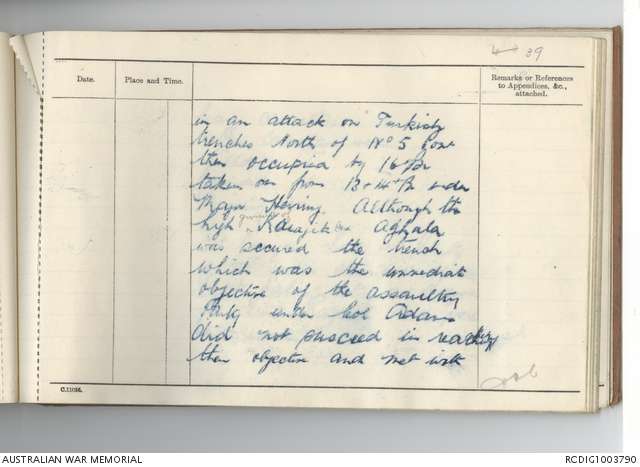 39
Date.
Place and Time.
Remarks or References
to Appendices, &c.,
attached.
in an attack on Turkish
trenches North of No 5 
then occupied by 16 Bn
taken over from 13 + 14th Bn under
Major Herring. Although the
high ground of Kaiajik Aghala
was secured the trench
which was the immediate
objective of the assaulting
Party under Col Adams
did not succeed in reaching
their objective and met with
C.11036.
AUSTRALIAN WAR MEMORIAL
RCDIG1003790